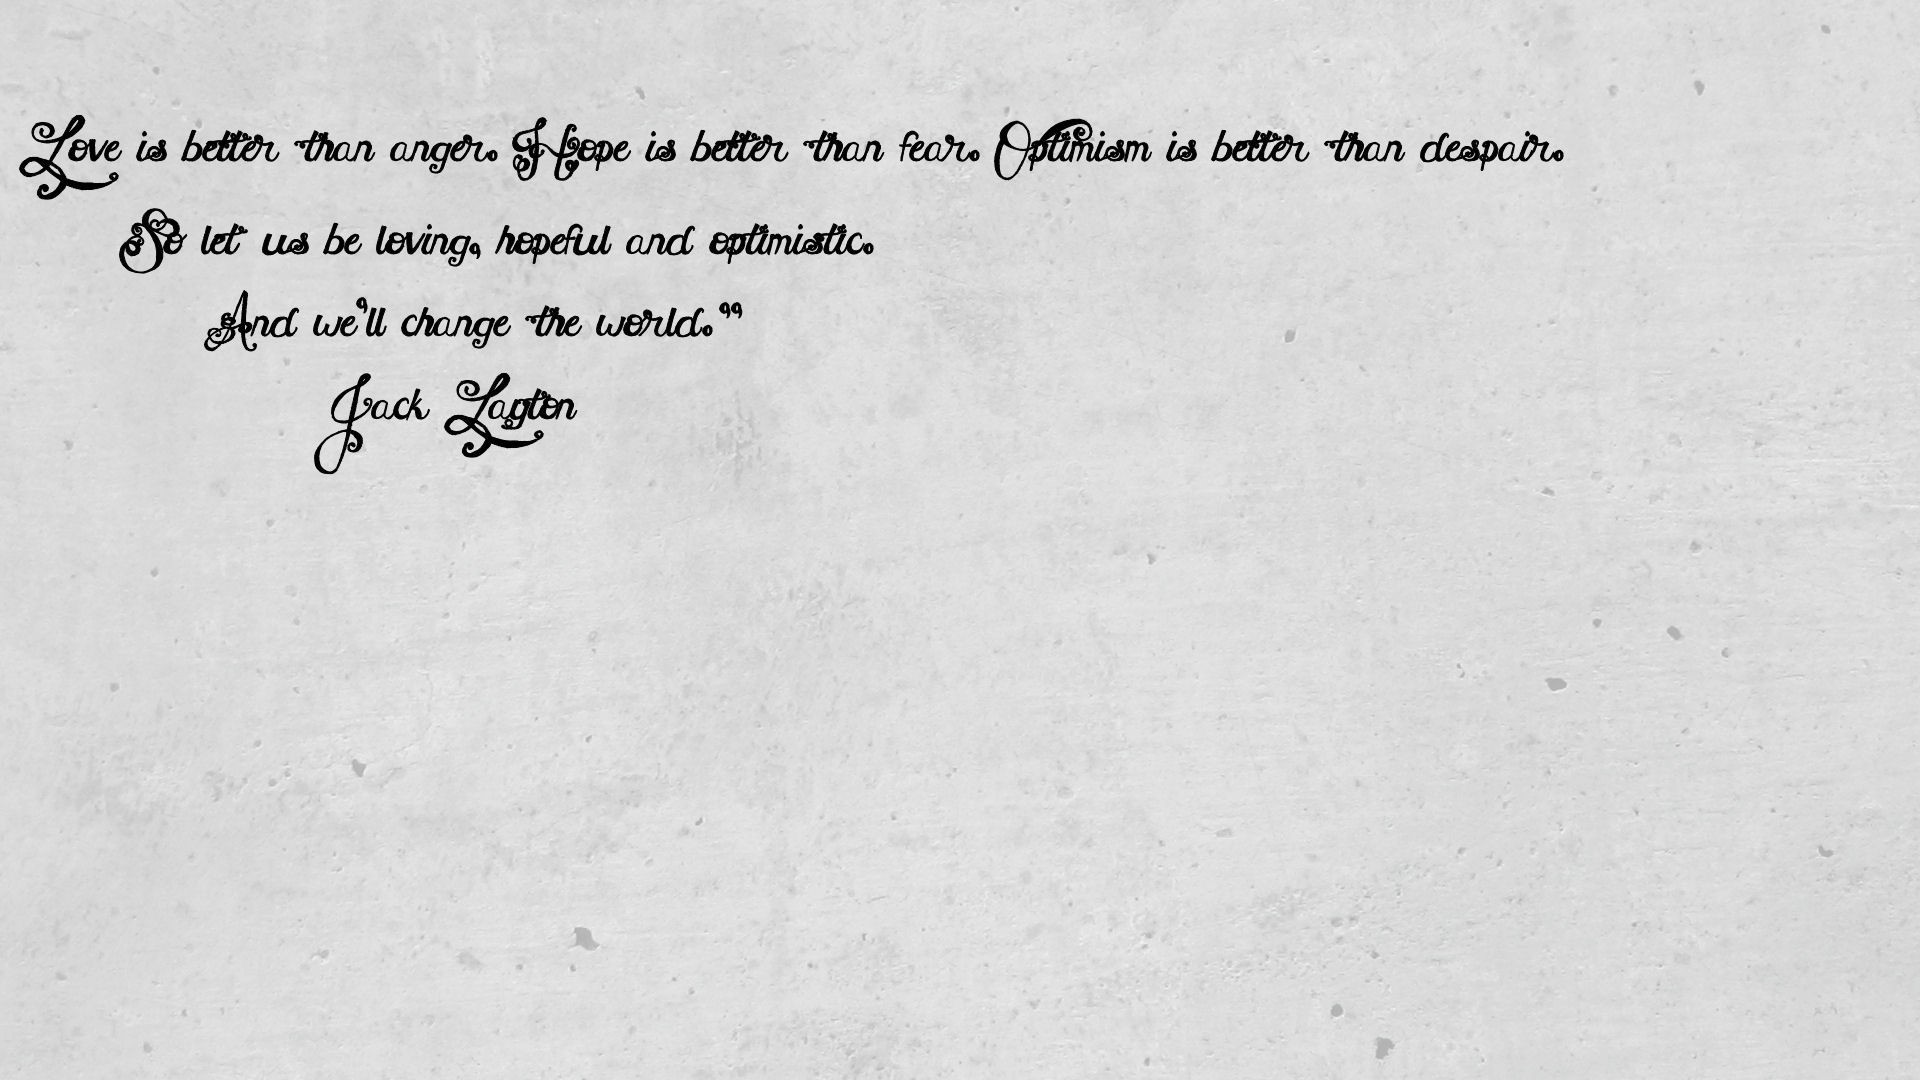 Love is better than anger. Hope is better than fear. Optimism is better than despair.
So let us be loving, hopeful and optimistic.
And we’ll change the world.”
Jack Layton